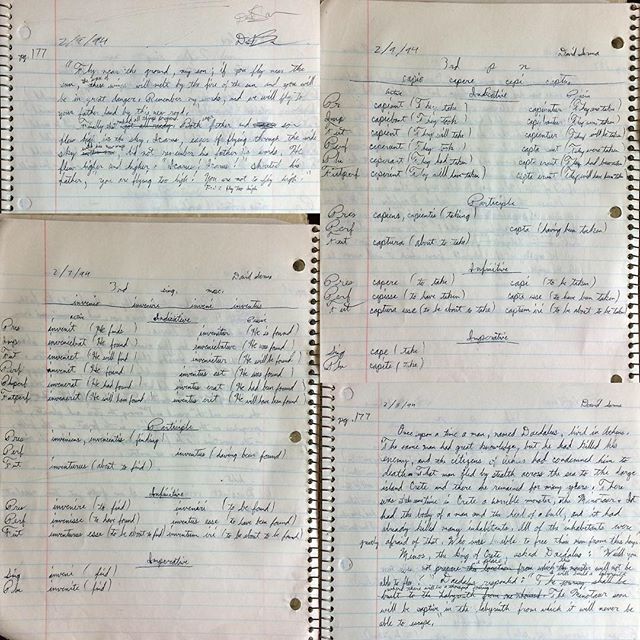 2/9/94
pg. 177
"Fly near the ground, my son; if you fly near the
sun, these wings will melt by the fire of the sun and you will
be in great danger. Remember my words, and we will fly to
your father land by this new road.
Both father and son
flew in the sky. Icarus, eager of flying through the wide
sky did not remember his father's words. He
flew higher and higher. "Icarus! Icarus!" shouted his
father, "you are flying too high! You are not to fly high."
2/9/94
3rd p n
capio capere capi capta
active Indicative
Pre capiunt (They take) capiuntur (They are taken)
Imp
Fut capient (They will take) capientur (They will be taken)
Perf ceperunt (They took)
Plu ceperant (They had taken)
Futperf ceperint (They will have taken)
Participle
Pres capiens, capientis (taking)
Perf capta (having been taken)
Fut captura (about to take)
Infinitive
Pres capere (to take) capi (to be taken)
Perf cepisse (to have taken) capta esse (to have been taken)
Fut captura esse (to be about to take) captum iri (to be about to be taken)
Imperative
Sing cape (take)
Plu capite (take)
2/7/94
3rd sing. masc.
invenio invenire inveni inventus
active Indicative Passive
Pres invenit (He finds) invenitur (He is found)
Imp inveniebat (He found) inveniebatur (He was found)
Fut inveniet (He will find) invenietur (He will be found)
Perf invenit (He found) inventus est (He was found)
Pluperf invenerat (He had found) inventus erat (He had been found)
Futperf invenerit (He will have found) inventus erit (He will have been found)
Participle
Pres inveniens, invenientis (finding)
Perf inventus (having been found)
Fut inventurus (about to find)
Infinitive
Pres invenire (to find) inveniri (to be found)
Perf invenisse (to have found) inventus esse (to have been found)
Fut inventurus esse (to be about to find) inventum iri (to be about to be found)
Imperative
Sing inveni (find)
Plu invenite (find)
2/8/94
pg. 177
Once upon a time a man, named Daedalus, lived in Athens.
The same man had great knowledge, but he had killed his
enemy, and the citizens of Athens had condemned him to
death. That man fled by stealth across the sea to the large
island Crete and there he remained for many years. There
was at that time in Crete a horrible monster, the Minotaur. It
had the body of a man and the head of a bull, and it had
already killed many inhabitants. All of the inhabitants were
greatly afraid of that. Who was able to free this man from this danger?
Minos, the king of Crete, asked Daedalus: "Will you
not prepare from which the monster will not be
able to flee?" Daedalus responded: "The shall be
built to the labyrinth The Minotaur soon
will be captive in the labyrinth from which it will never be
able to escape."